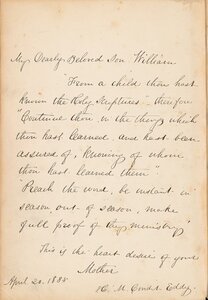 My Dearly Beloved Son William
"From a child thou hast
known the Holy Scriptures therefore
"Continue thou in the things which
thou hast learned and hast been
assured of, knowing of whom
thou hast learned them"
"Preach the word, be instant in
season, out of season, make
full proof of thy ministry"
This is the heart desire of your
Mother
April 20. 1888